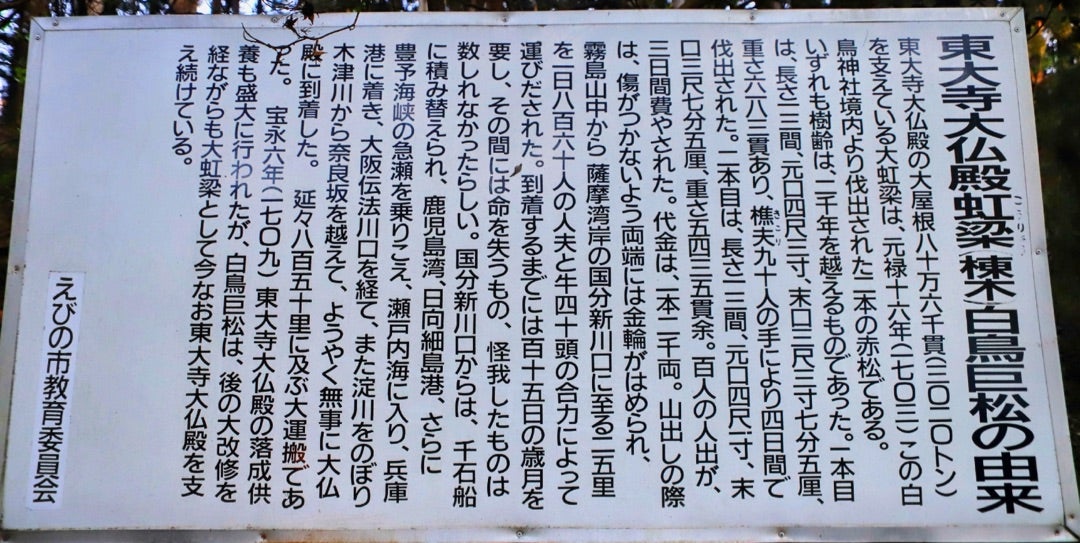 東大寺大仏殿虹梁(棟木)白鳥巨松の由来
こうりょう
東大寺大仏殿の大屋根八十万六千貫(三〇二〇トン)
を支えている大虹梁は、元禄十六年(一七〇三)この白
鳥神社境内より伐出された二本の赤松である。
いずれも樹齢は、二千年を越えるものであった。一本目
は、長さ一三間、元口四尺三寸、末口三尺三寸七分五厘、
重さ六一八三貫あり、樵夫九十人の手により四日間で
きこり
伐出された。二本目は、長さ一三間、元口四尺一寸、末
口三尺七分五厘、重さ五四三五貫余。百人の人出が、
三日間費やされた。代金は、一本二千両。山出しの際
は、傷がつかないよう両端には金輪がはめられ、
霧島山中から 薩摩湾岸の国分新川口に至る二五里
を一日八百六十人の人夫と牛四十頭の合力によって
運びだされた。到着するまでには百十五日の歳月を
要し、その間には命を失うもの、怪我したものは
数しれなかったらしい。国分新川口からは、千石船
に積み替えられ、鹿児島湾、日向細島港、さらに
豊予海峡の急瀬を乗りこえ、瀬戸内海に入り、兵庫
港に着き、大阪伝法川口を経て、また淀川をのぼり
木津川から奈良坂を越えて、ようやく無事に大仏
殿に到着した。 延々八百五十里に及ぶ大運搬であ
った。 宝永六年(一七〇九)東大寺大仏殿の落成供
養も盛大に行われたが、白鳥巨松は、後の大改修を
経ながらも大虹梁として今なお東大寺大仏殿を支
え続けている。
えびの市教育委員会